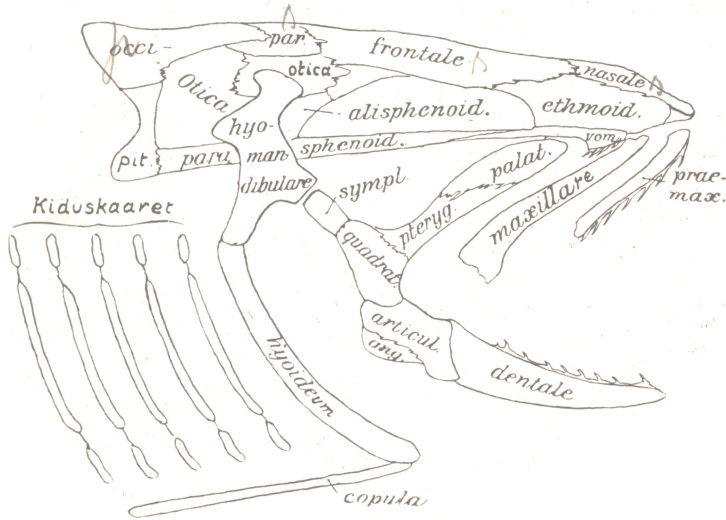 occi-
par.
frontale
nasale
Otica
otica
alisphenoid.
ethmoid.
hyo-
man
dibulare
pit.
para
sphenoid.
vom.
sympl
palat.
pteryg.
maxillare
prae-
max.
Kiduskaaret
quadrat.
articul.
ang.
dentale
hyoideum
copula